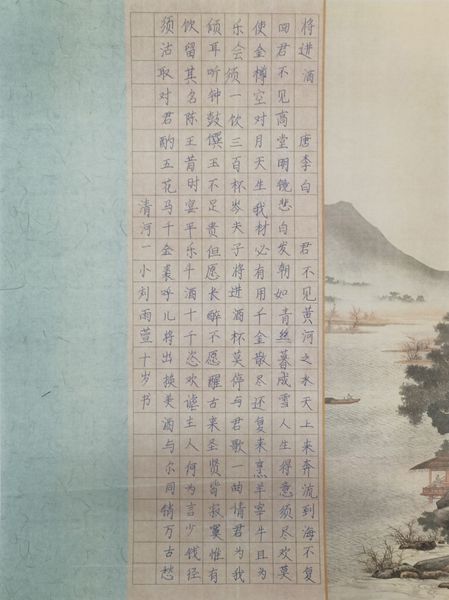 将进酒 唐李白 君不见黄河之水天上来奔流到海不复
回君不见高堂明镜悲白发朝如青丝暮成雪人生得意须尽欢莫
使金樽空对月天生我材必有用千金散尽还复来烹羊宰牛且为
乐会须一饮三百杯岑夫子将进酒杯莫停与君歌一曲请君为我
倾耳听钟鼓馔玉不足贵但愿长醉不愿醒古来圣贤皆寂寞惟有
饮留其名陈王昔时宴平乐斗酒十千恣欢谑主人何为言少钱径
须沽取对君酌五花马千金裘呼儿将出换美酒与尔同销万古愁
清河一小刘雨萱十岁书